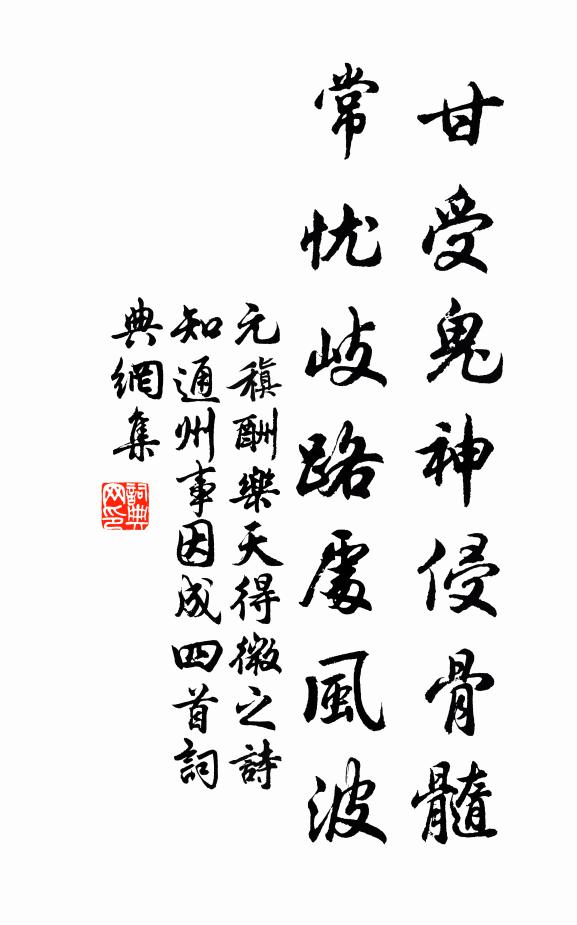 甘受鬼神侵骨髓
常忧岐路處風波
元稹酬樂天得微之詩
知通州事因成四首詞
典網集
詞典网印